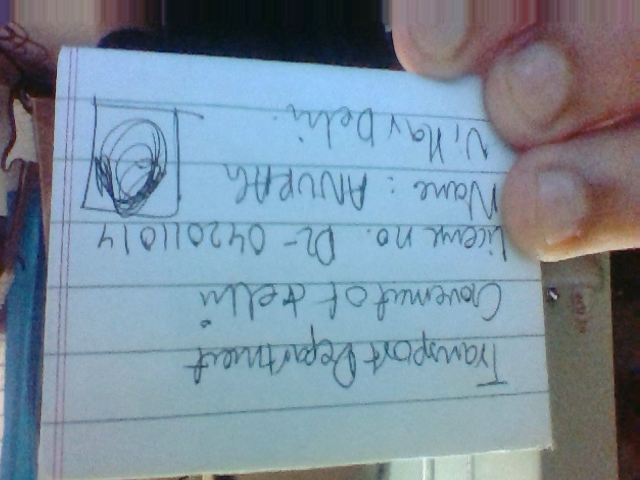 Transport Department
Goverment of delhi
License no. DL-042011014
Name: ANURAG
N, Delhi